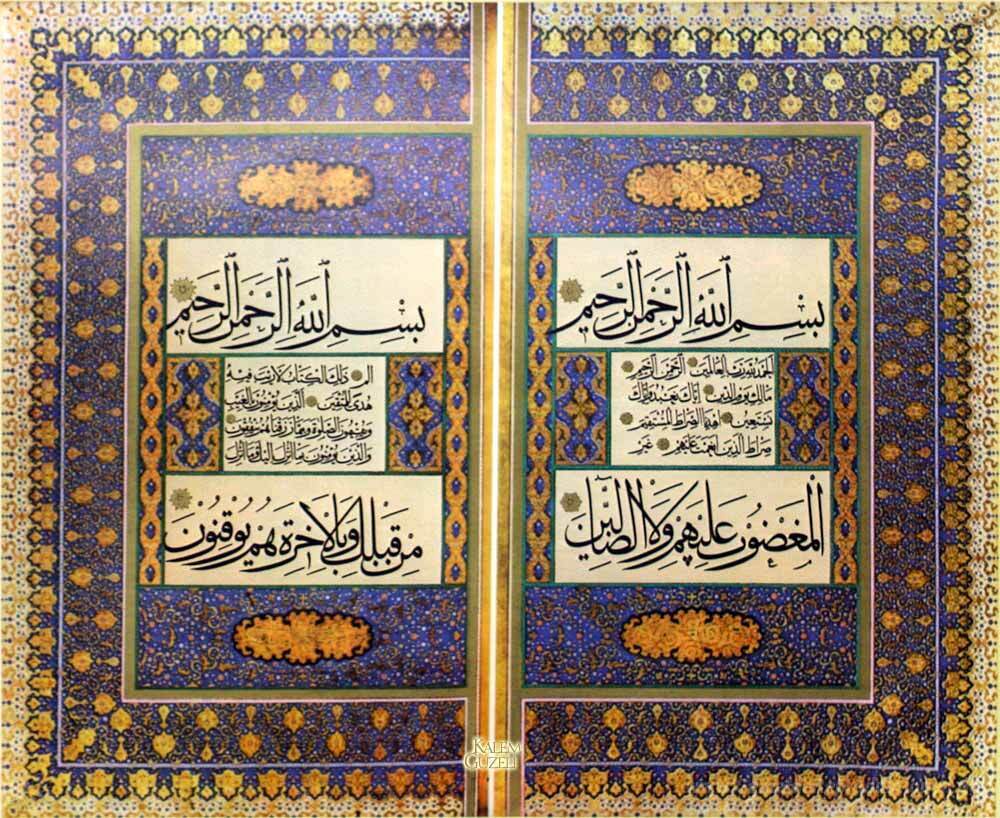 بِسْمِ اللَّهِ الرَّحْمٰنِ الرَّحِيمِ
الحمد لله رب العالمين الرحمن الرحيم
مالك يوم الدين إياك نعبد وإياك
نستعين اهدنا الصراط المستقيم
صراط الذين أنعمت عليهم غير
المغضوب عليهم ولا الضالين
بِسْمِ اللَّهِ الرَّحْمٰنِ الرَّحِيمِ
الم ذلك الكتاب لا ريب فيه
هدى للمتقين الذين يؤمنون بالغيب
ويقيمون الصلوة ومما رزقناهم ينفقون
والذين يؤمنون بما أنزل إليك وما أنزل
من قبلك وبالآخرة هم يوقنون
KALEM
GÜZELİ